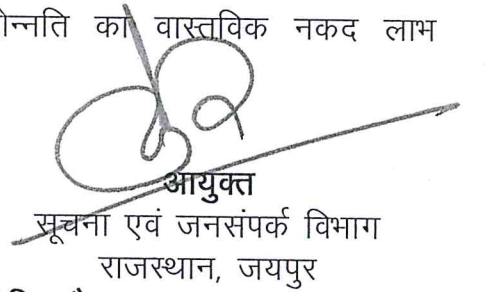 का वास्तविक नकद लाभ
आयुक्त
सूचना एवं जनसंपर्क विभाग
राजस्थान, जयपुर